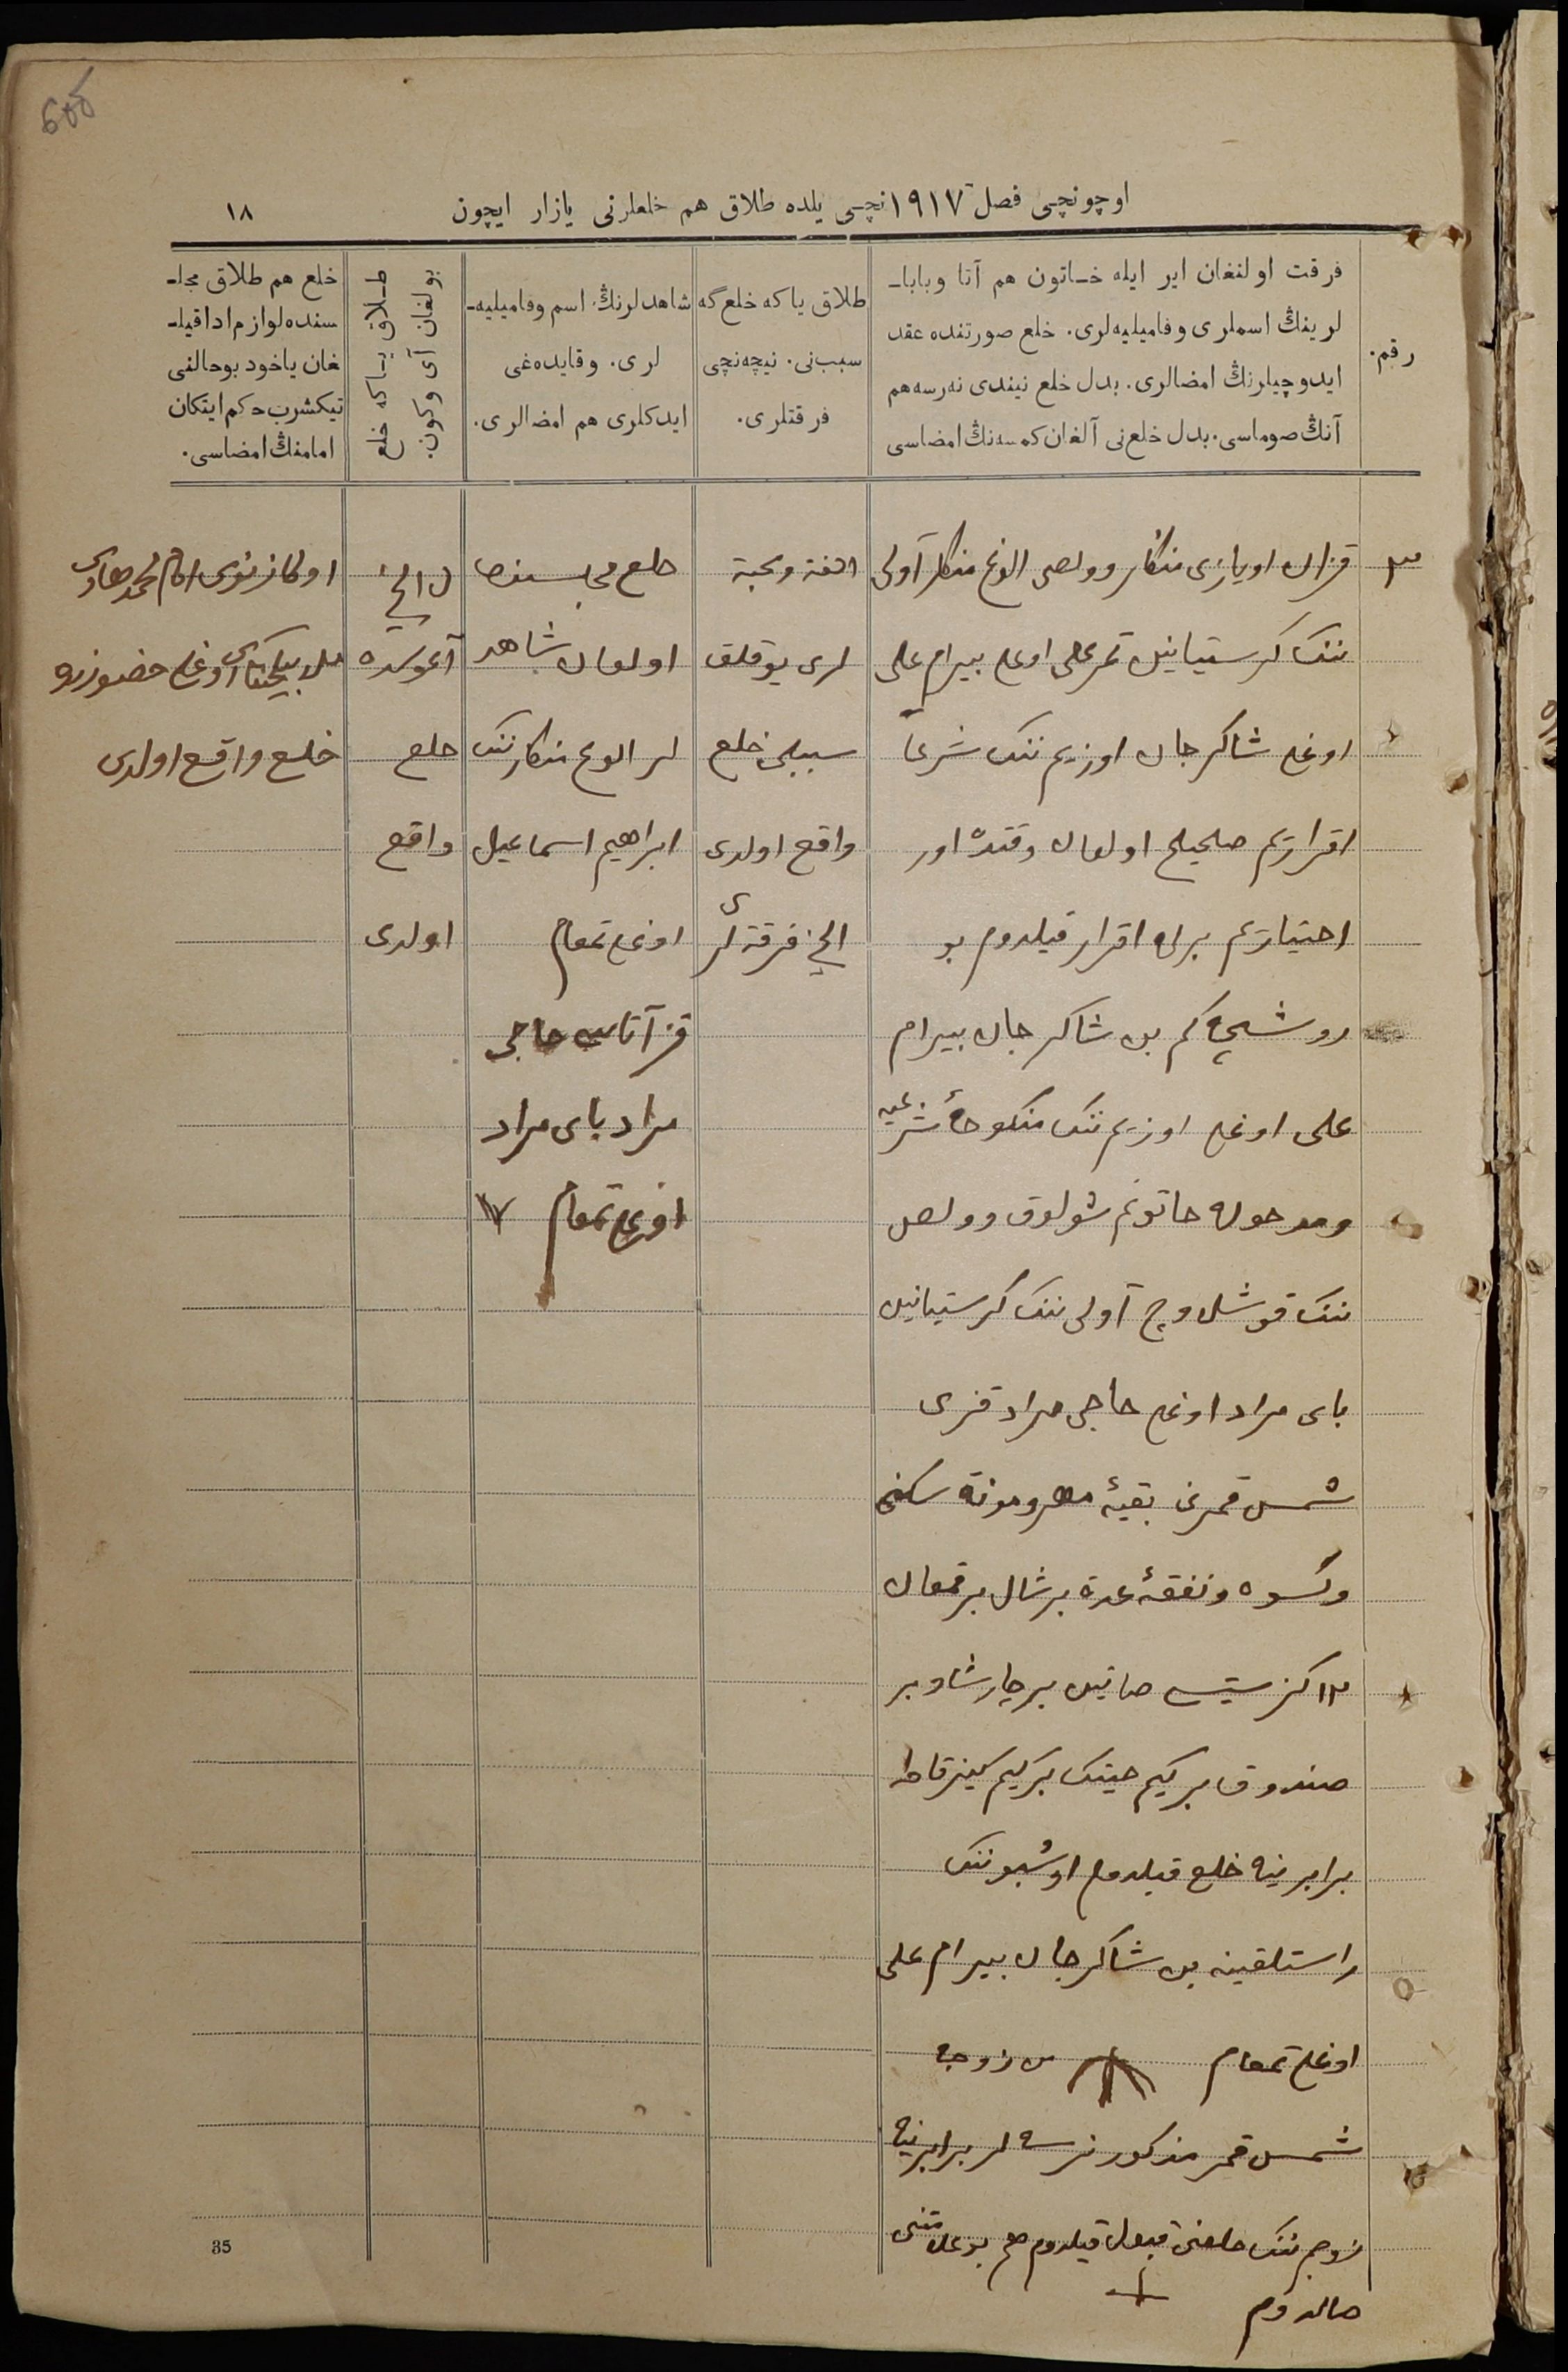 608
اوچونچی فصل ۱۹۱۷نچی یلده طلاق هم خلعلرنی یازار ایچون
۱۸
رقم.
فرقت اولنغان ایر ایله خاتون هم آتا وبابا-
لرینڭ اسملری وفامیلیه‌لری. خلع صورتنده عقد
ایدوچیلرنڭ امضالری. بدل خلع نیندی نه‌رسه هم
آنڭ صوماسی. بدل خلع‌نی آلغان کمسه‌نڭ امضاسی
طلاق یا که خلع گه
سبب‌نی. نیچه‌نچی
فرقتلری.
شاهدلرنڭ اسم وفامیلیه-
لری. وقایده‌غی
ایدکلری هم امضالری.
طلاق یاکه خلع
بولغان آی وکون.
خلع هم طلاق مجلـ-
سنده لوازم ادا قیلـ-
غان یاخود بوحالنی
تیکشرب حکم ایتکان
امامنڭ امضاسی.
۳
قزان اویازی منگار وولصی الوغ منگار آولی
ننک کرستیانین تمرعلی اوغلی بیرام علی
اوغلی شاکرجان اوزیم ننک شرعاً
اقراریم صحیح اولغان وقتده اوز
اختیاریم برله اقرار قیلدوم بو
روشچه کم بن شاکرجان بیرام
علی اوغلی اوزیم ننک منکوحهٔ شرعیه
ومدخوله خاتونم شولوق وولصی
ننک قوشلاوچ آولی ننک کرستیانین
بای مراد اوغلی حاجی مراد قزی
شمس قمرنی بقیهٔ مهر ومؤنة سکنی
وکسوه ونفقهٔ عدة برشال برقمغان
۱۲ کز ستسه صاتین برچارشاو بر
صندوق برکیم چیتک برکیم کیز قاطا
برابرینه خلع قیلدوم اوشبوننک
راستلقینه بن شاکرجان بیرام علی
اوغلی تمغام من زوجه
شمس قمر مذکور نرسه لر برابرینه
زوجم ننک خلعنی قبول قیلدوم هم بوعلامتنی
صالدوم
الفة ومحبة
لری یوقلق
سببلی خلع
واقع اولدی
۱نچی فرقة لری
خلع مجلسنده
اولغان شاهد
لر الوغ منگارننک
ابراهیم اسماعیل
اوغلی تمغام
قز آتاسی حاجی
مراد بای مراد
اوغلی تمغام
۱نچی
آغوسده
خلع
واقع
اولدی
اوکازنوی امام محمدهادی
ملا بیکچنتای اوغلی حضورنده
خلع واقع اولدی
35